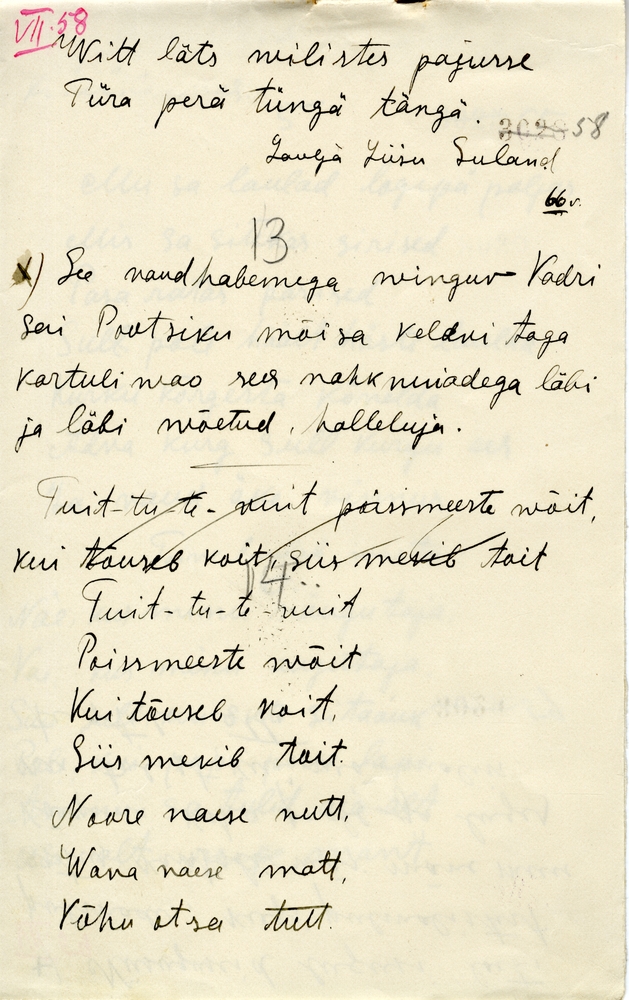 VII.58
Witt läts wilistes pajusse
Türa perä tüngä tängä.
30285 58
Laulja Liisu Suland
66 v.
13
x) See naudhabemega winguv Kadri
sai Pootsiku mõisa keldri taga
kartuli wao sees nahkmuadega läbi
ja läbi wõetud, halleluja.
Tuit-tu-te-nuit poissmeeste wõit,
kui tõuseb koit, siis mekib toit
14
Tuit-tu-te-nuit
Poissmeeste wõit
Kui tõuseb koit,
Siis mekib toit.
Noore naese nutt,
Wana naese matt,
Kõhu otsa tutt.